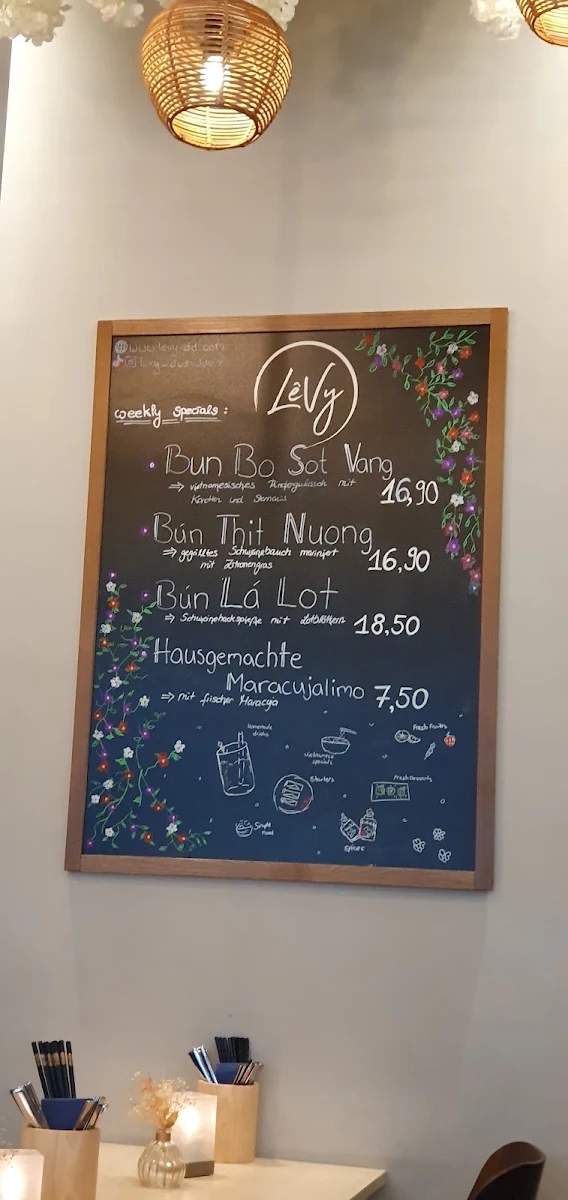 www.levy-dd.com
LêVy
weekly specials :
Bun Bo Sot Vang
⇒ vietnamesisches Rindergulasch mit
Karotten und
16,90
Bún Thit Nuong
⇒ gegrilltes Schweinebauch mariniert
mit Zitronengras
16,90
Bún Lá Lot
⇒ Schweinehackspieße mit Lotblättern
18,50
Hausgemachte
Maracujalimo 7,50
⇒ mit frischer Maracuja
homemade
drinks
vietnamese
specials
Fresh Fruits
Starters
Fresh Desserts
spices